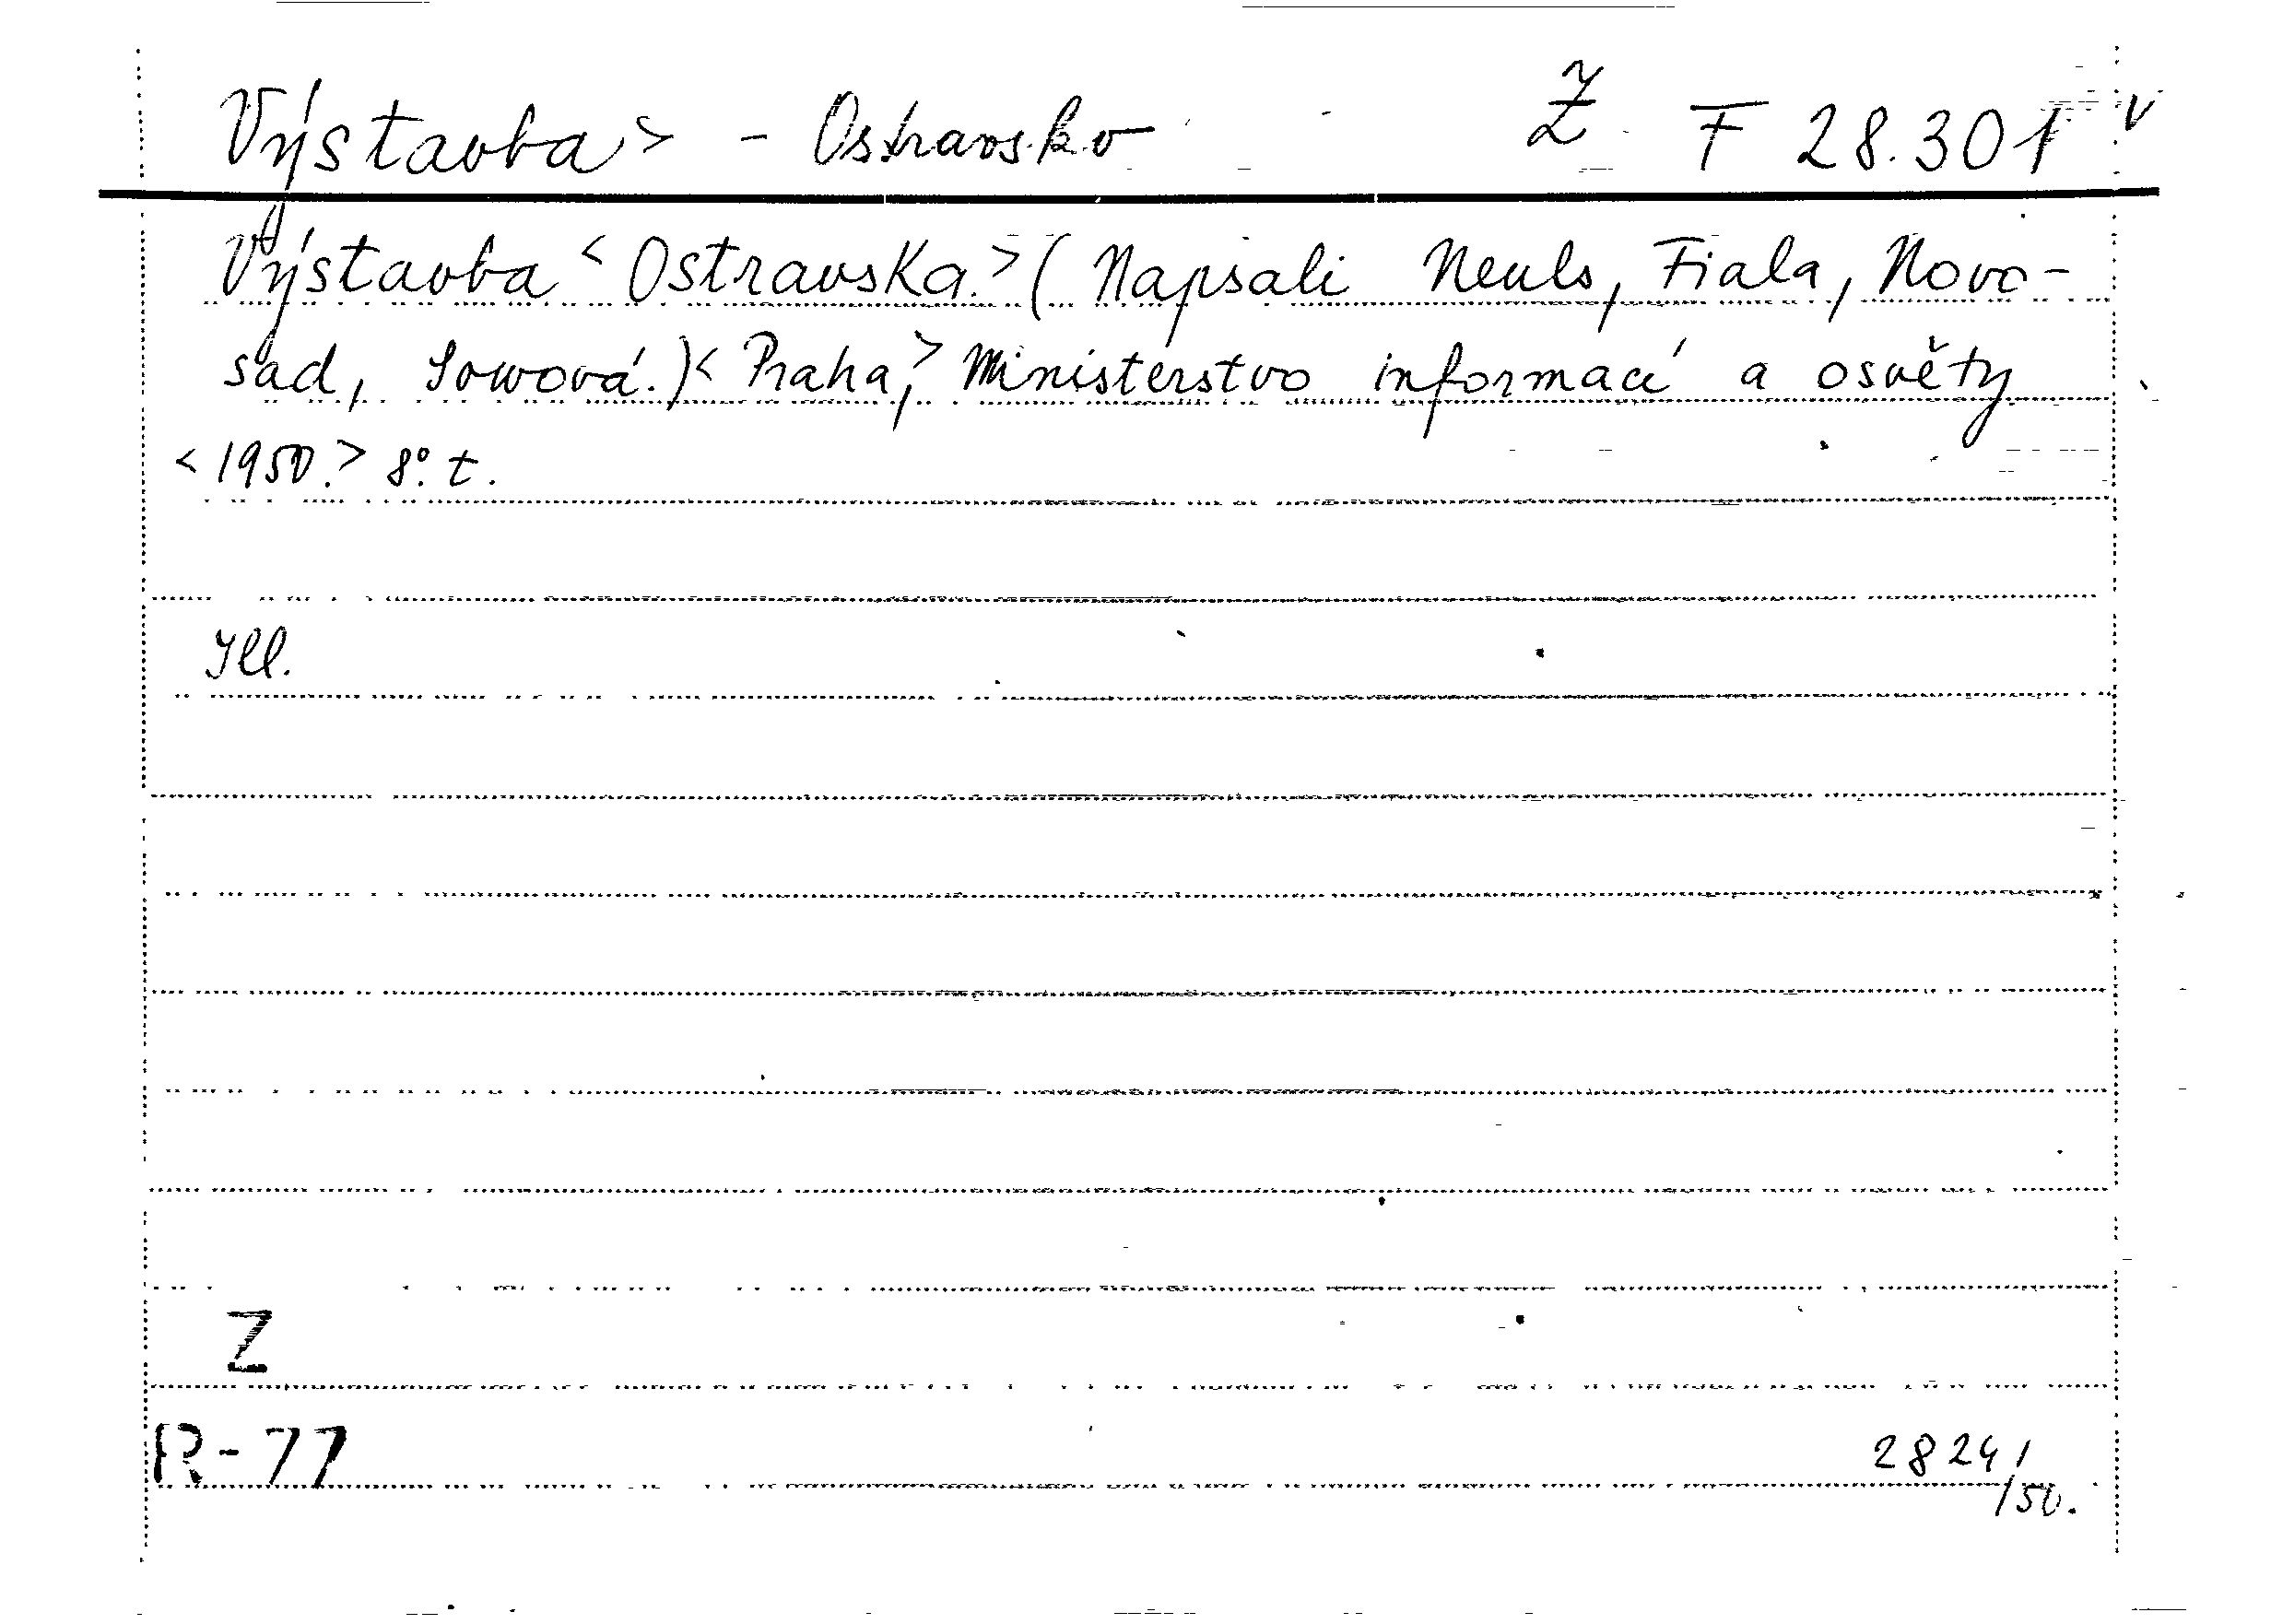 Výstavba> - Ostravsko Ž F 28.301 v
Výstavba <Ostravska.> (Napsali Neuls, Fiala, Novo-
sad, Sowová.) <Praha,> Ministerstvo informací a osvěty
<1950.> 8°. t.
Ill.
Z
R-77
28241
/50.